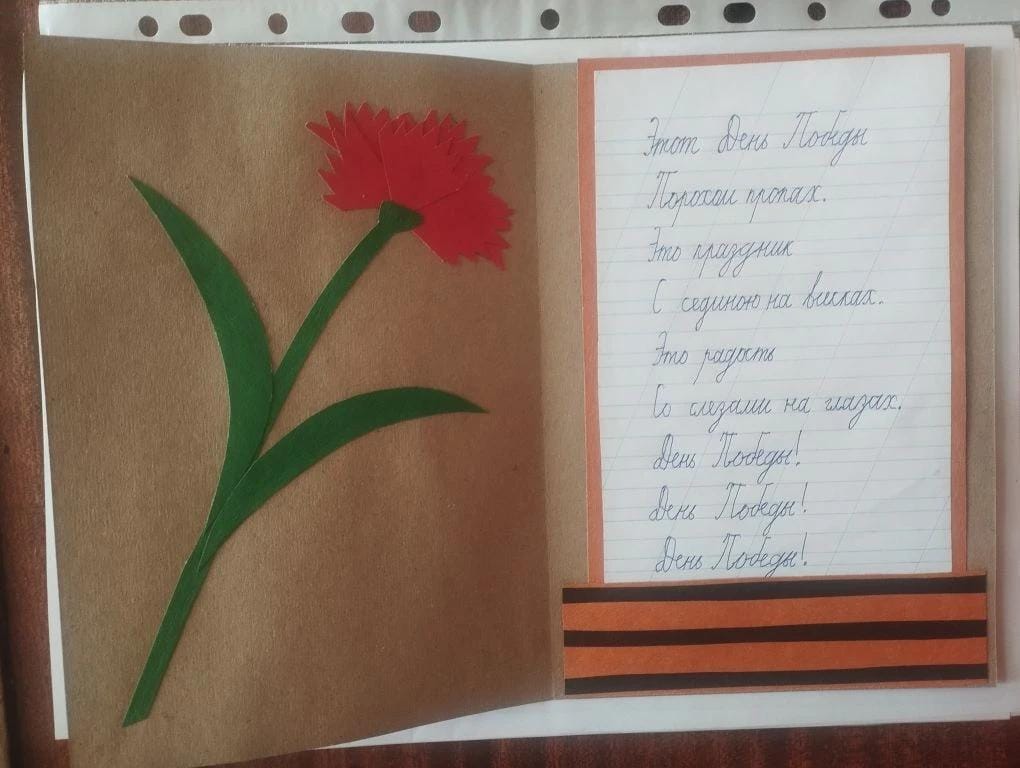 Этот День Победы
Порохом пропах.
Это праздник
С сединою на висках.
Это радость
Со слезами на глазах.
День Победы!
День Победы!
День Победы!